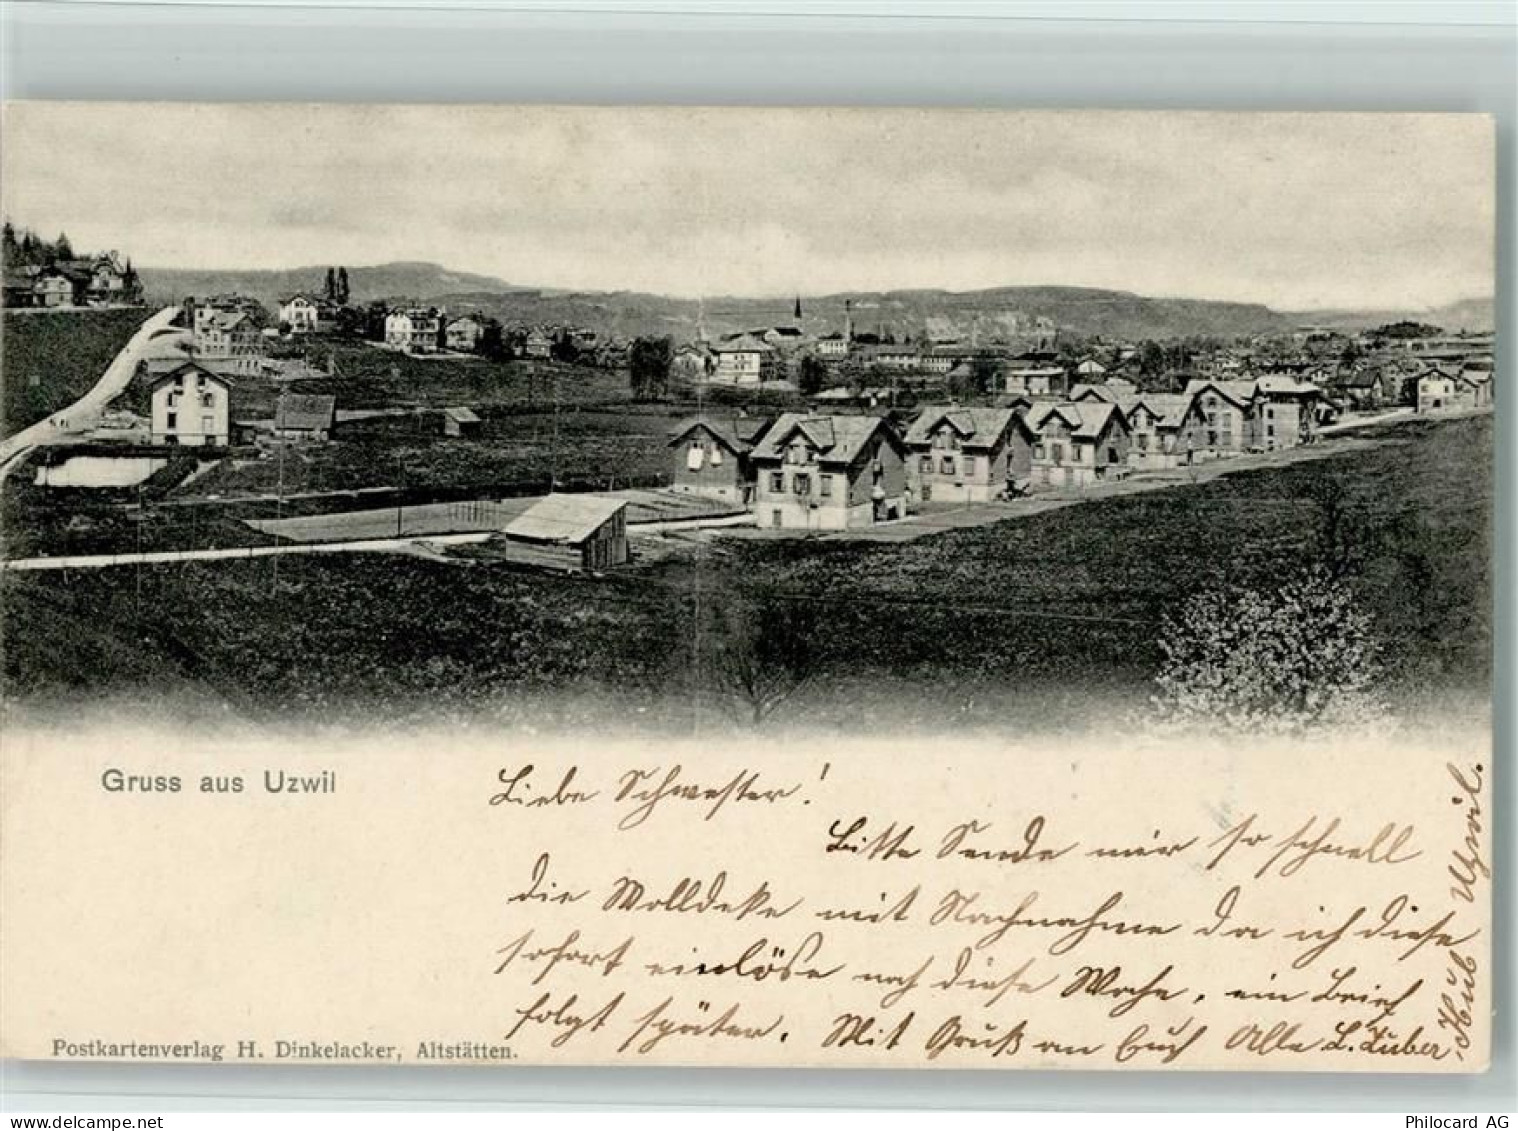 Gruss aus Uzwil
Liebe Schwester!
Bitte Sende mir so schnell
die Wolldeke mit Nachnahme da ich diese
sofort einlöse noch diese Woche, ein Brief
folgt später. Mit Gruß an Euch Alle L. Zuber
Uzwil.
Postkartenverlag H. Dinkelacker, Altstätten.
hippostcard.com
Philocard AG